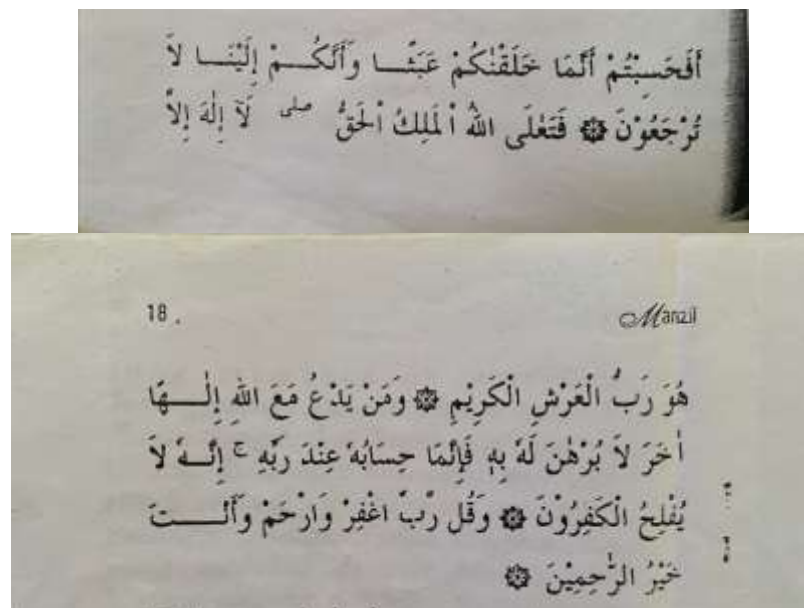 أَفَحَسِبْتُمْ أَنَّمَا خَلَقْنٰكُمْ عَبَثًــا وَأَنَّكُـــمْ إِلَيْنَــا لاَ
تُرْجَعُوْنَ ۞ فَتَعٰلَى اللهُ الْمَلِكُ الْحَقُّ صلى لَآ إِلٰهَ إِلاَّ
18 . Manzil
هُوَ رَبُّ الْعَرْشِ الْكَرِيْمِ ۞ وَمَنْ يَدْعُ مَعَ اللهِ إِلٰــهًا
أٰخَرَ لاَ بُرْهٰنَ لَهٗ بِهٖ فَإِنَّمَا حِسَابُهٗ عِنْدَ رَبِّهٖ ج إِنَّــهٗ لاَ
يُفْلِحُ الْكَفِرُوْنَ ۞ وَقُل رَّبِّ اغْفِرْ وَارْحَمْ وَأَنْــــتَ
خَيْرُ الرّٰحِمِيْنَ ۞